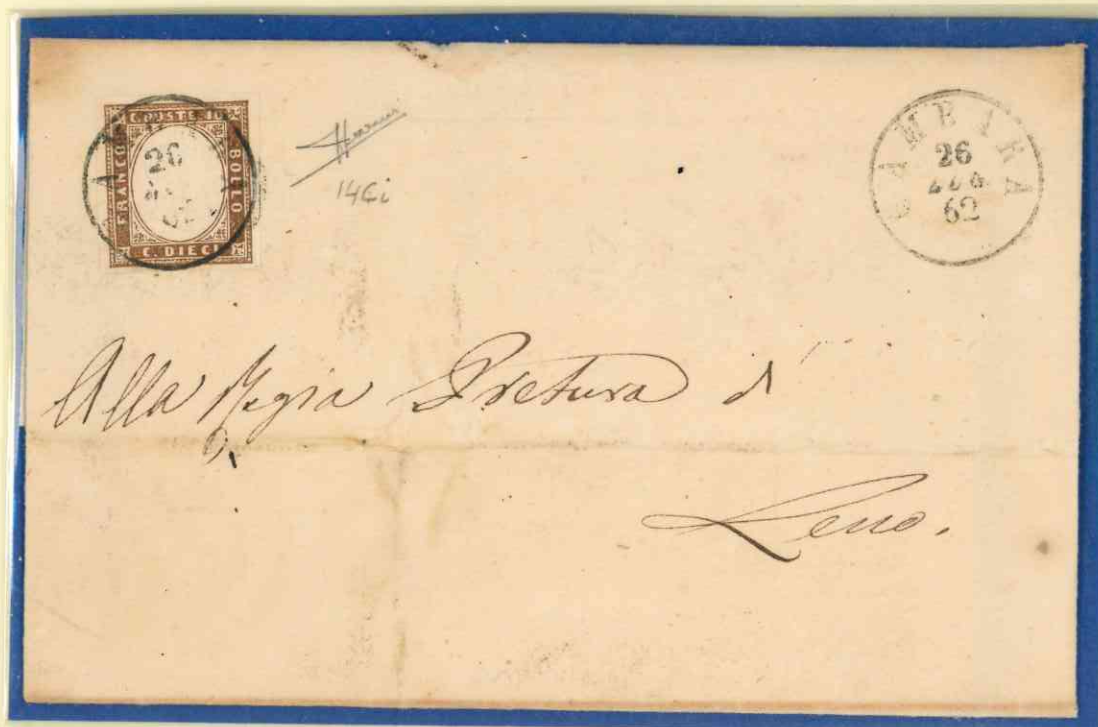 C POSTE 10
FRANCO
BOLLO
C. DIECI
26
62
14Ci
GAMBARA
26
LUG
62
Alla Regia Pretura di
Leno.